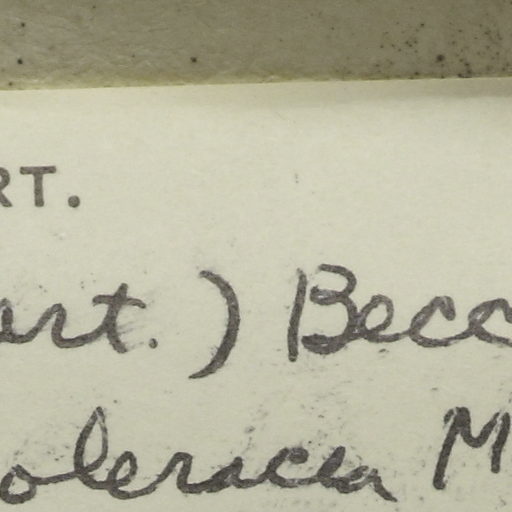 RT.
art.) Becc
oleracea M